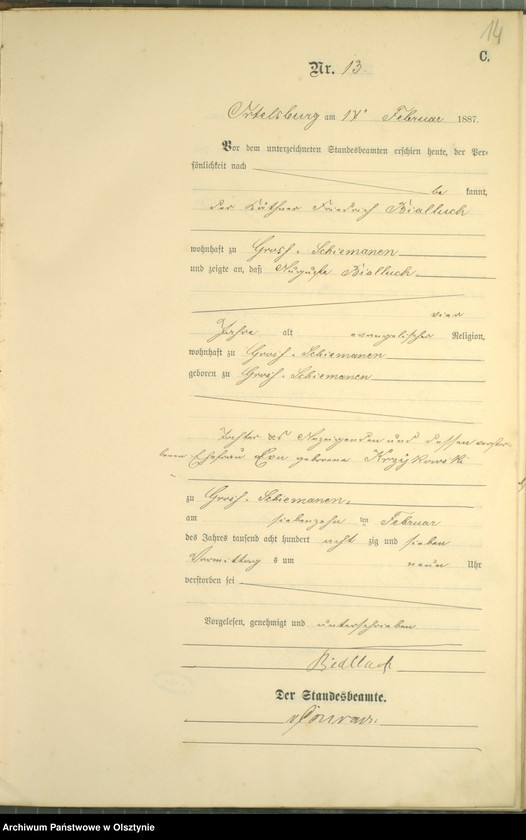 14
C.
Nr. 13.
Ortelsburg am 18. Februar 1887.
Vor dem unterzeichneten Standesbeamten erschien heute, der Per-
sönlichkeit nach
be kannt,
der Käthner Friedrich Bialluch
wohnhaft zu Groß-Schiemanen
und zeigte an, daß Auguste Bialluch
vier
Jahre alt evangelischer Religion,
wohnhaft zu Groß-Schiemanen
geboren zu Groß-Schiemanen
Tochter des Anzeigenden und dessen verstor-
benen Ehefrau Eva geborene Krzykowski
zu Groß-Schiemanen
am siebenzehn ten Februar
des Jahres tausend acht hundert acht zig und sieben
Vormittag s um neun Uhr
verstorben sei
Vorgelesen, genehmigt und unterschrieben
Der Standesbeamte.
Conrad.
Archiwum Państwowe w Olsztynie